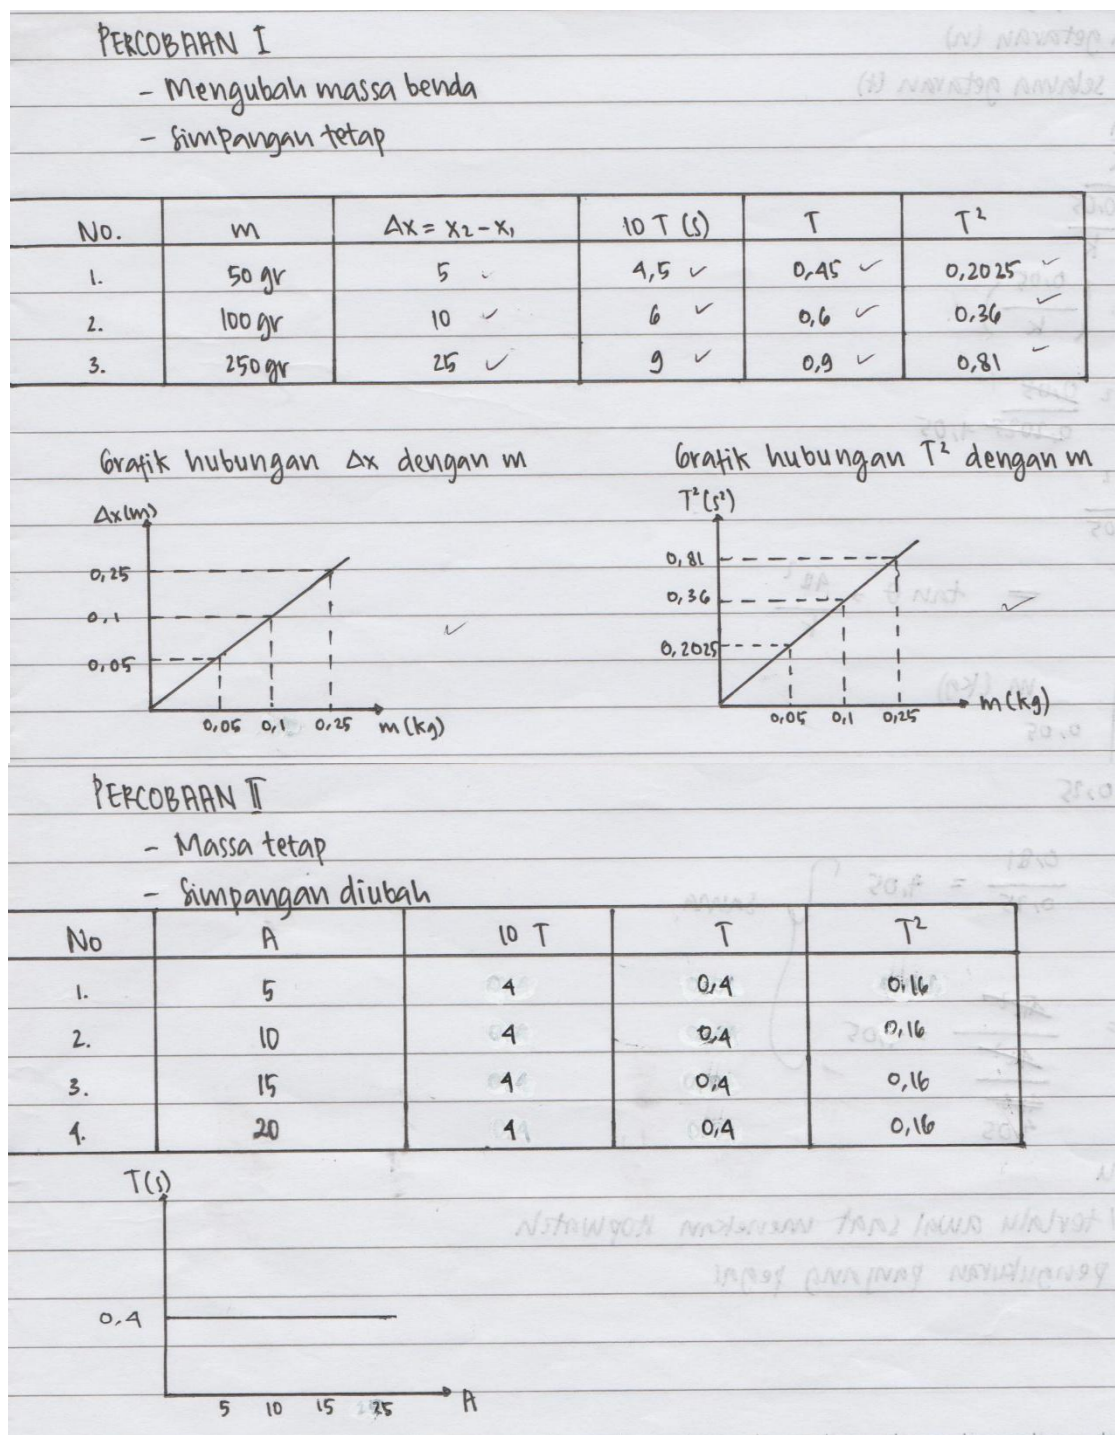 PERCOBAAN I
- Mengubah massa benda
- Simpangan tetap
No. m Δx = x₂ - x₁ 10 T (s) T T²
1. 50 gr 5 ✓ 4,5 ✓ 0,45 ✓ 0,2025 ✓
2. 100 gr 10 ✓ 6 ✓ 0,6 ✓ 0,36 ✓
3. 250 gr 25 ✓ 9 ✓ 0,9 ✓ 0,81 ✓
Grafik hubungan Δx dengan m
Δx (m)
0,25
0,1
0,05
0,05 0,1 0,25 m (kg)
✓
Grafik hubungan T² dengan m
T² (s²)
0,81
0,36
0,2025
0,05 0,1 0,25 m (kg)
✓
PERCOBAAN II
- Massa tetap
- Simpangan diubah
No A 10 T T T²
1. 5 4 0,4 0,16
2. 10 4 0,4 0,16
3. 15 4 0,4 0,16
4. 20 4 0,4 0,16
T(s)
0,4
5 10 15 25 A